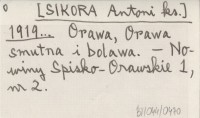 [SIKORA Antoni ks.]
1919... Orawa, Orawa
smutna i bolawa. - No-
winy Spisko-Orawskie 1,
nr 2.